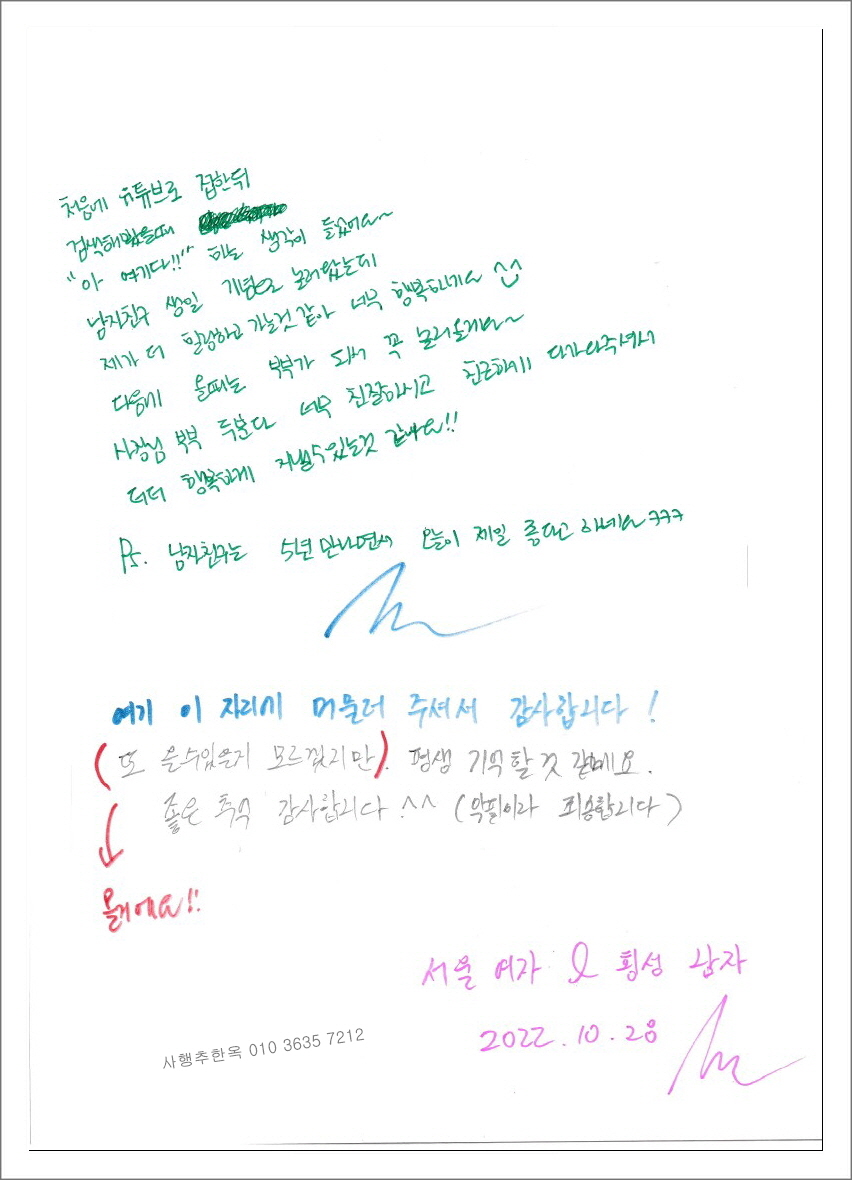 처음에 유튜브로 접한뒤
검색해봤을때
"아 여기다!!" 하는 생각이 들었어요~
남자친구 생일 기념으로 놀러왔는데
제가 더 힐링하고 가는것 같아 너무 행복하네요
다음에 올때는 부부가 되서 꼭 놀러올게요~
사장님 부부 두분다 너무 친절하시고 친근하게 다가와주셔서
더더 행복하게 지낼수있는것 같아요!!
Ps. 남자친구는 5년 만나면서 오늘이 제일 좋다고 하네요 ㅋㅋㅋ
여기 이 자리에 머물러 주셔서 감사합니다!
(또 올수있을지 모르겠지만). 평생 기억할것 같네요.
좋은 추억 감사합니다 ^^ (악필이라 죄송합니다)
올거에요!!
서울 여자 & 횡성 남자
2022.10.28
사행추한옥 010 3635 7212